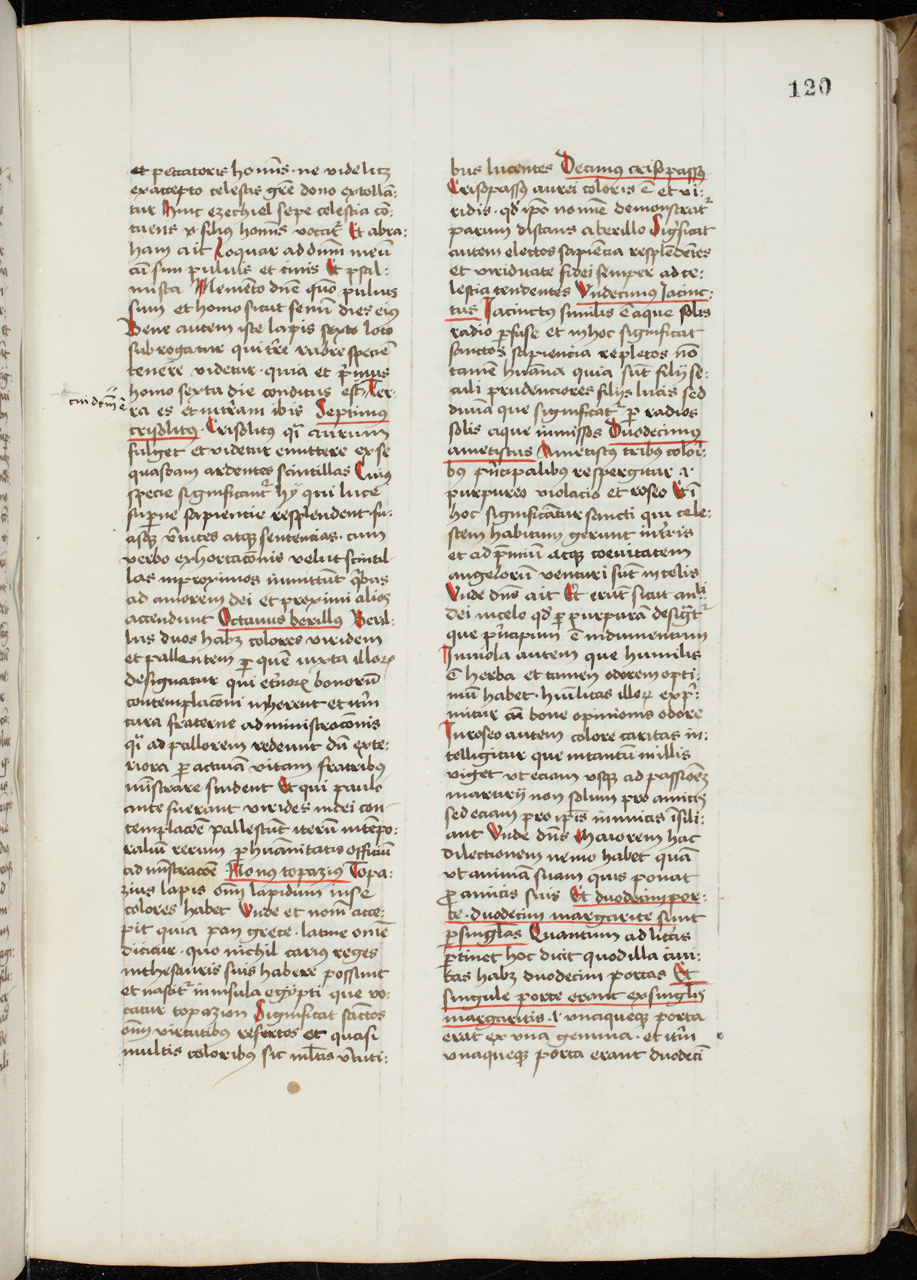 120
et peccatoris homīs · ne videlicꝫ
ex accepto celestis gr̄e dono extollā-
tur Hinc ezechiel sepe celestia cō-
tuens ⁊ filius homīs vocatꝛ Et abra-
ham ait Loquar ad dn̄m meū
cū sim pulvis et cinis Et psal-
mista Memēto dn̄e quō pulvis
sum et homo sicut fenū dies eiꝯ
Bene autem iste lapis sexto loco
subrogatur qui tr̄e rubr̄e speciē
tenere videtur · quia et p̄mus
homo sexta die conditus est Ter-
cui dc̄m ē
ra es et in terram ibis Septimus
crisolitus · Crisolitus qͣi aurum
fulget et videtur emittere ex se
quasdam ardentes scintillas Cuiꝯ
specie significantꝛ hij qui luce
sup̄ne sapientie resplendent su-
asqꝫ v̄tutes atqꝫ sentencias · cum
verbo exhortacōnis velut scintil
las in proximos inmittūt qͥbus
ad amorem dei et proximi alios
accendunt Octavus berillꝯ Beril-
lus duos habꝫ colores viridem
et pallentem ꝑ quē iuxta illoꝝ
designatur qui et̄noꝝ bonorū
contemplacōni inherent et iꝉm
cura fraterne administracōnis
qͣi ad pallorem redeunt dū exte-
riora ꝑ activā vitam fratribꝯ
mīstrare student Et qui paulo
ante fuerant virides in dei con
templacōe pallescūt iterū intēpo-
ralium rerum ꝑ hūanitatis officiū
ad mīstracōe · Nonus topazius Topa-
zius lapis om̄ lapidum in se
colores habet Unde et nom̄ acce-
pit quia pan grece · latine om̄e
dicitur · quo nichil carius reges
in thesauris suis habere possunt
et nascitꝛ in insula egypti que vo-
catur topazion Significat sanctos
om̄ virtutibus refertos et quasi
multis coloribus sic ml̄tis v̄tuti-
bus lucentes Decimus crisopassꝯ
Crisopassꝯ aurei coloris ē et vi-
ridis · qd̄ ip̄o nomīe demonstratꝛ
parum distans a berillo Sig̾ficat
autem electos sapiēcia resplendētes
et viriditate fidei semper ad ce-
lestia tendentes Undecimus Iacinc-
tus Iacinctꝯ similis ē aque solis
radio ꝑfuse et in hoc significat
sanctos sapiencia repletos nō
tamē hūana quia sūt filij se-
culi prudenciores filijs lucis sed
divīa que significatꝛ ꝑ radios
solis aque inmissos Duodecimus
ametistus Ametistꝯ tribus colori-
bꝯ p̄ncipalibus respergitur ·
purpureo violacio et roseo Et ī
hoc significātur sancti qui cele-
stem habitum gerunt in t̄ris
et ad p̄mium atqꝫ coevitatem
angelorū venturi sūt in celis
Unde dn̄s ait Et erūt sicut anḡli
dei in celo qd̄ ꝑ purpurā desigtꝛ
que p̄ncipum ē indumentum
In viola autem que humilis
ē herba et tamen odorem opti-
mū habet · hūlitas illoꝝ expͥ-
mitur cū bone opinionis odore
In roseo autem colore caritas in-
telligitur que in tantū in illis
viget ut eciam usqꝫ ad passionē
martirij non solum pro amicis
sed eciam pro ip̄is inimicis īsili-
ant Unde dn̄s Maiorem hac
dilectionem nemo habet quā
ut animā suam quis ponat
ꝓ amicis suis Et duodecim por-
te · duodecim margarite sunt
ꝑ singulas Quantum ad l̄ras
ꝑtinet hoc dicit quod illa civi-
tas habꝫ duodecim portas Et
singule porte erant ex singulis
margaritis · unaqueqꝫ porta
erat ex una gemma · et iꝉm
unaqueqꝫ porta erant duodecī